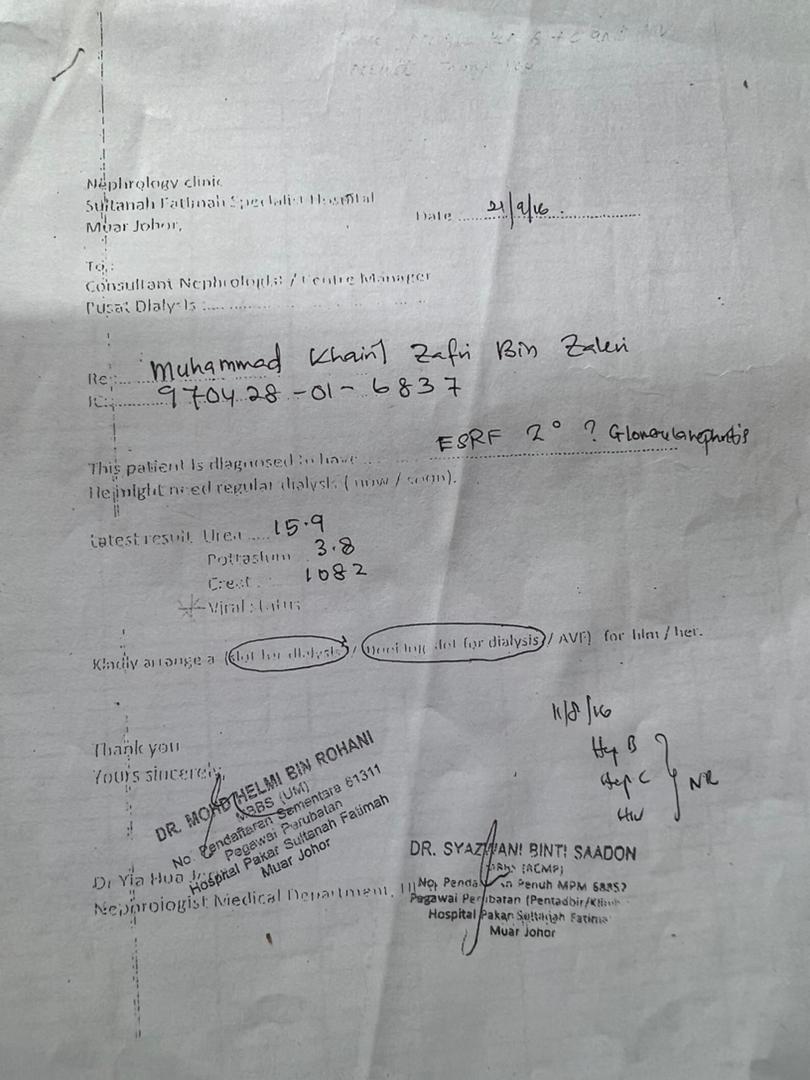 Nephrology clinic
Sultanah Fatimah Specialist Hospital
Date ........ 21/9/16 ........
Muar Johor,
To :
Consultant Nephrologist / Centre Manager
Pusat Dialysis : ........
Re : Muhammad Khairil Zafri Bin Zaleri
IC : 970428-01-6837
This patient is diagnosed to have ........ ESRF 2° ? Glomerulonephritis
He might need regular dialysis ( now / soon).
Latest result Urea ..... 15.9
Pottasium 3.8
Creat : 1082
Viral status
Kindly arrange a (slot for dialysis / slot for dialysis / AVF) for him / her.
11/8/16
Hep B
Hep C } NR
HIV
Thank you
Yours sincerely,
DR. MOHD HELMI BIN ROHANI
MBBS (UM)
No. Pendaftaran Sementara 61311
Pegawai Perubatan
Hospital Pakar Sultanah Fatimah
Muar Johor
Dr Yia Hua
Nephrologist Medical Department,
DR. SYAZWANI BINTI SAADON
(RCMP)
No. Penuh MPM
Pegawai Perubatan (Pentadbir/
Hospital Pakar Sultanah Fatima
Muar Johor